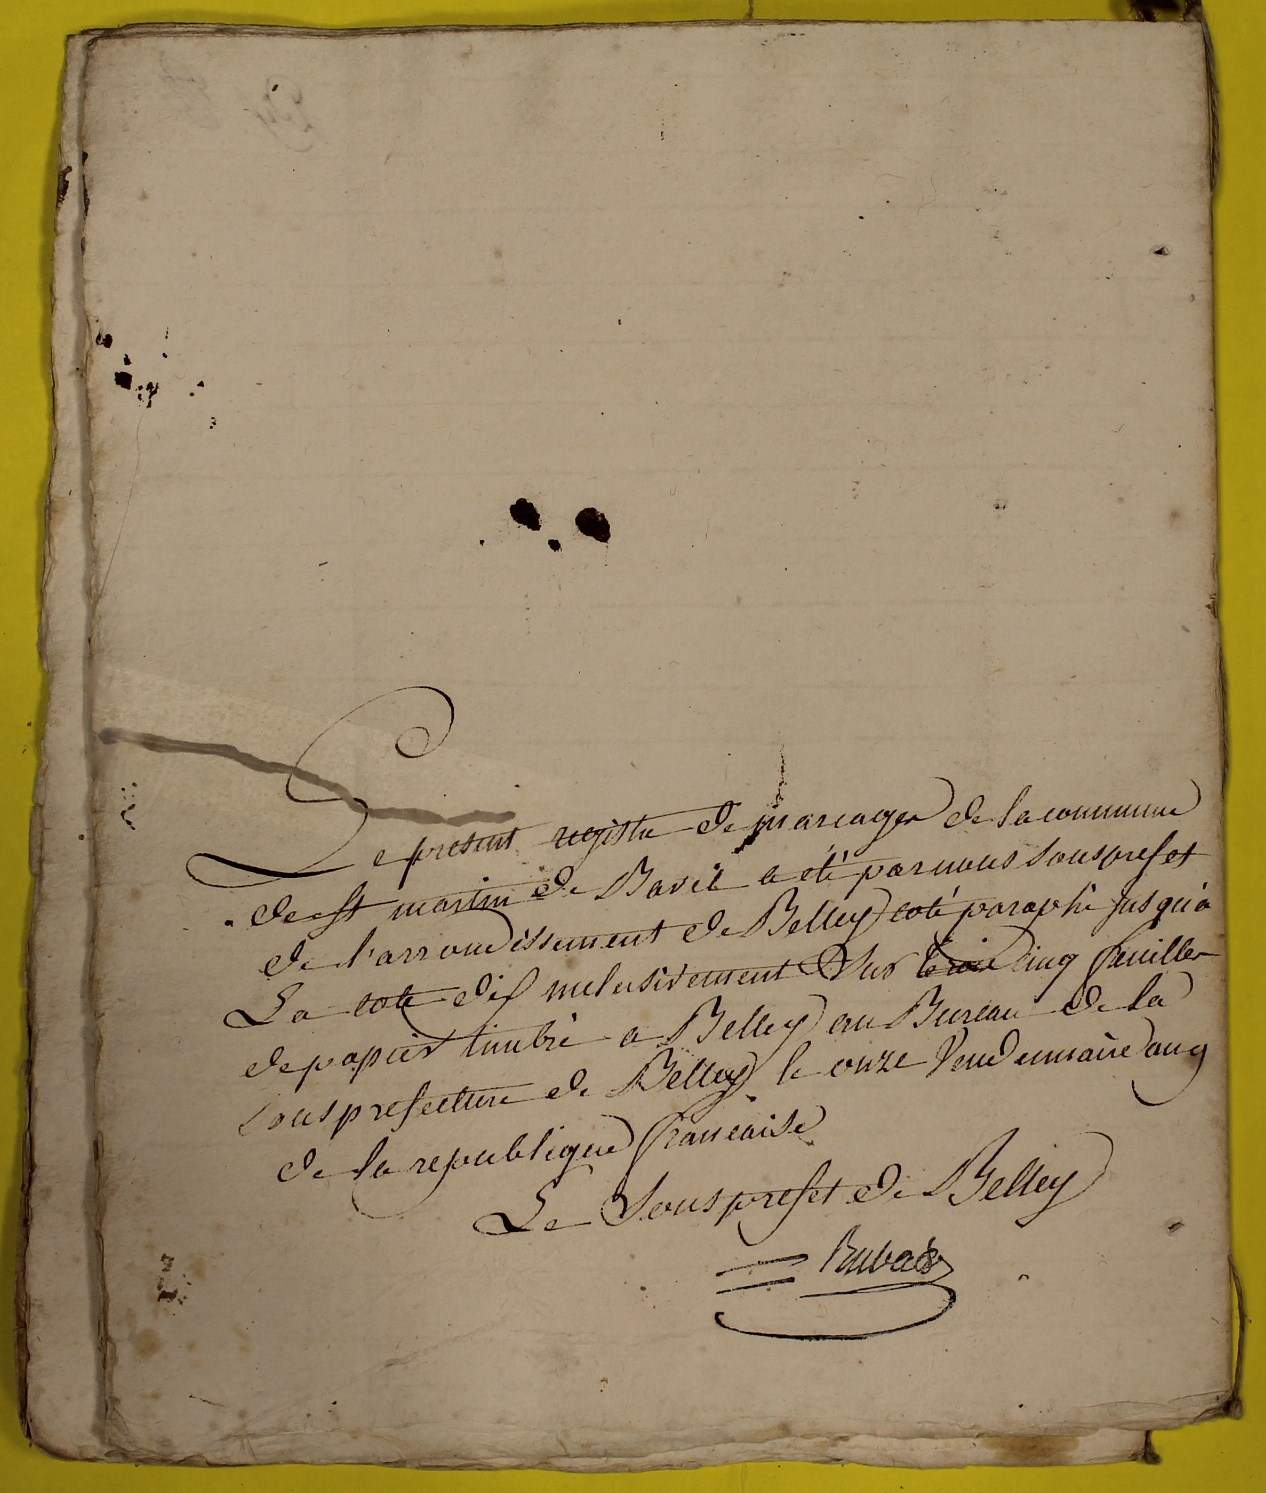 Le present registre de mariages de la commune
de st martin de Bavel a eté par nous sousprefet
de l'arrondissement de Belley coté paraphé jusqu'a
La cote dix inclusivement sur cinq feuilles
de papier timbré a Belley au Bureau de la
sousprefecture de Belley le onze Vendemiaire an 9
de la republique francaise
Le Sousprefet de Belley